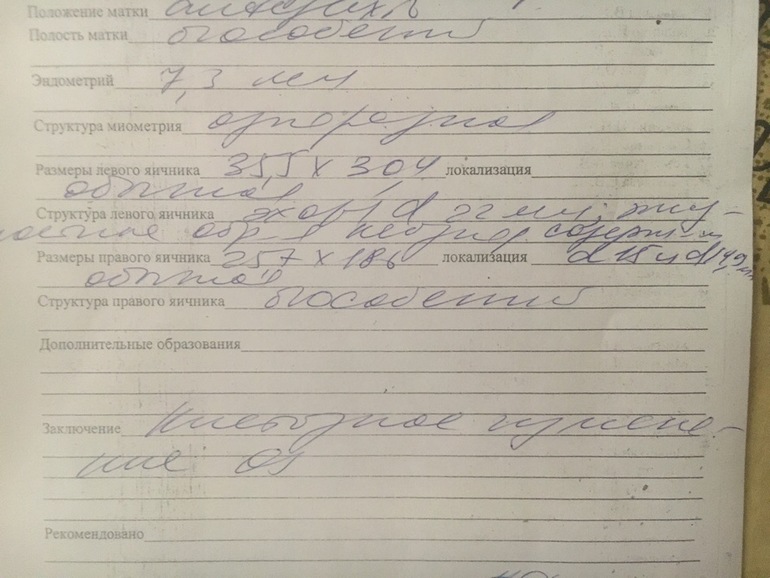 Положение матки
Полость матки б/особенностей
Эндометрий 7,3 мм
Структура миометрия однородная
Размеры левого яичника 35,5 х 30,4 локализация
обычная
Структура левого яичника d 22 мм, жид-
костное обр-е
Размеры правого яичника 25,7 х 18,6 локализация d 15 и d
обычная
Структура правого яичника б/особенностей
Дополнительные образования
Заключение Кистозное измене-
ние
Рекомендовано